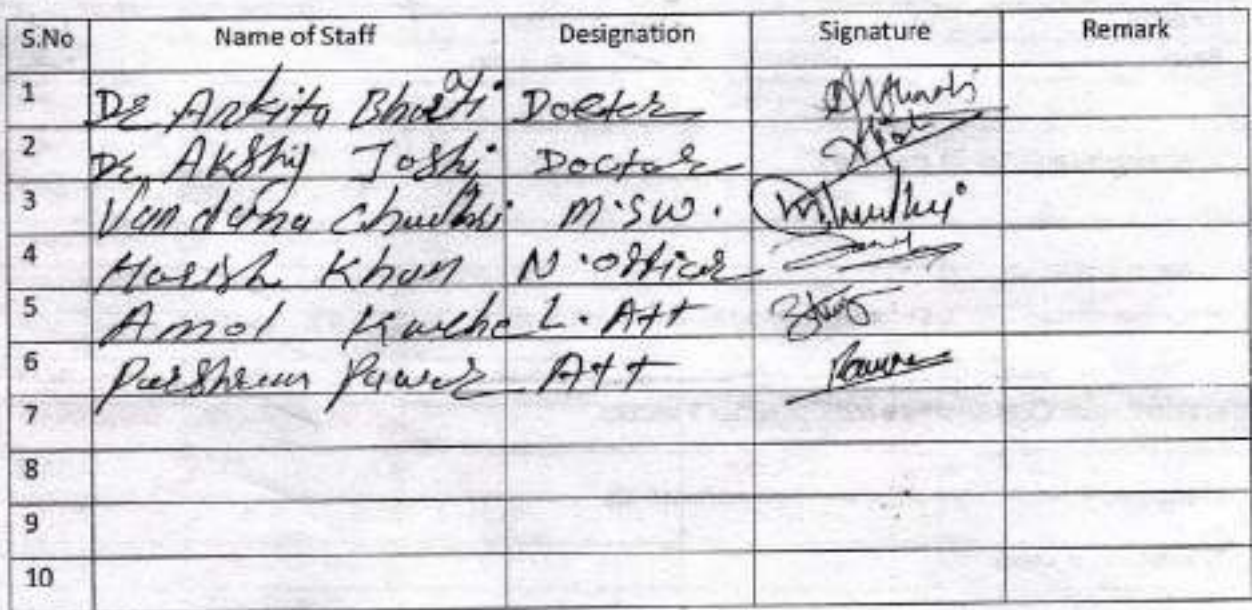 S.No Name of Staff Designation Signature Remark
1 Dr Ankita Bharti Doctor
2 Dr Akshij Joshi Doctor
3 Vandana Chudhri M.S.W.
4 Harish Khan N.Officer
5 Amol L.Att
6 Parshram Pawar Att
7
8
9
10